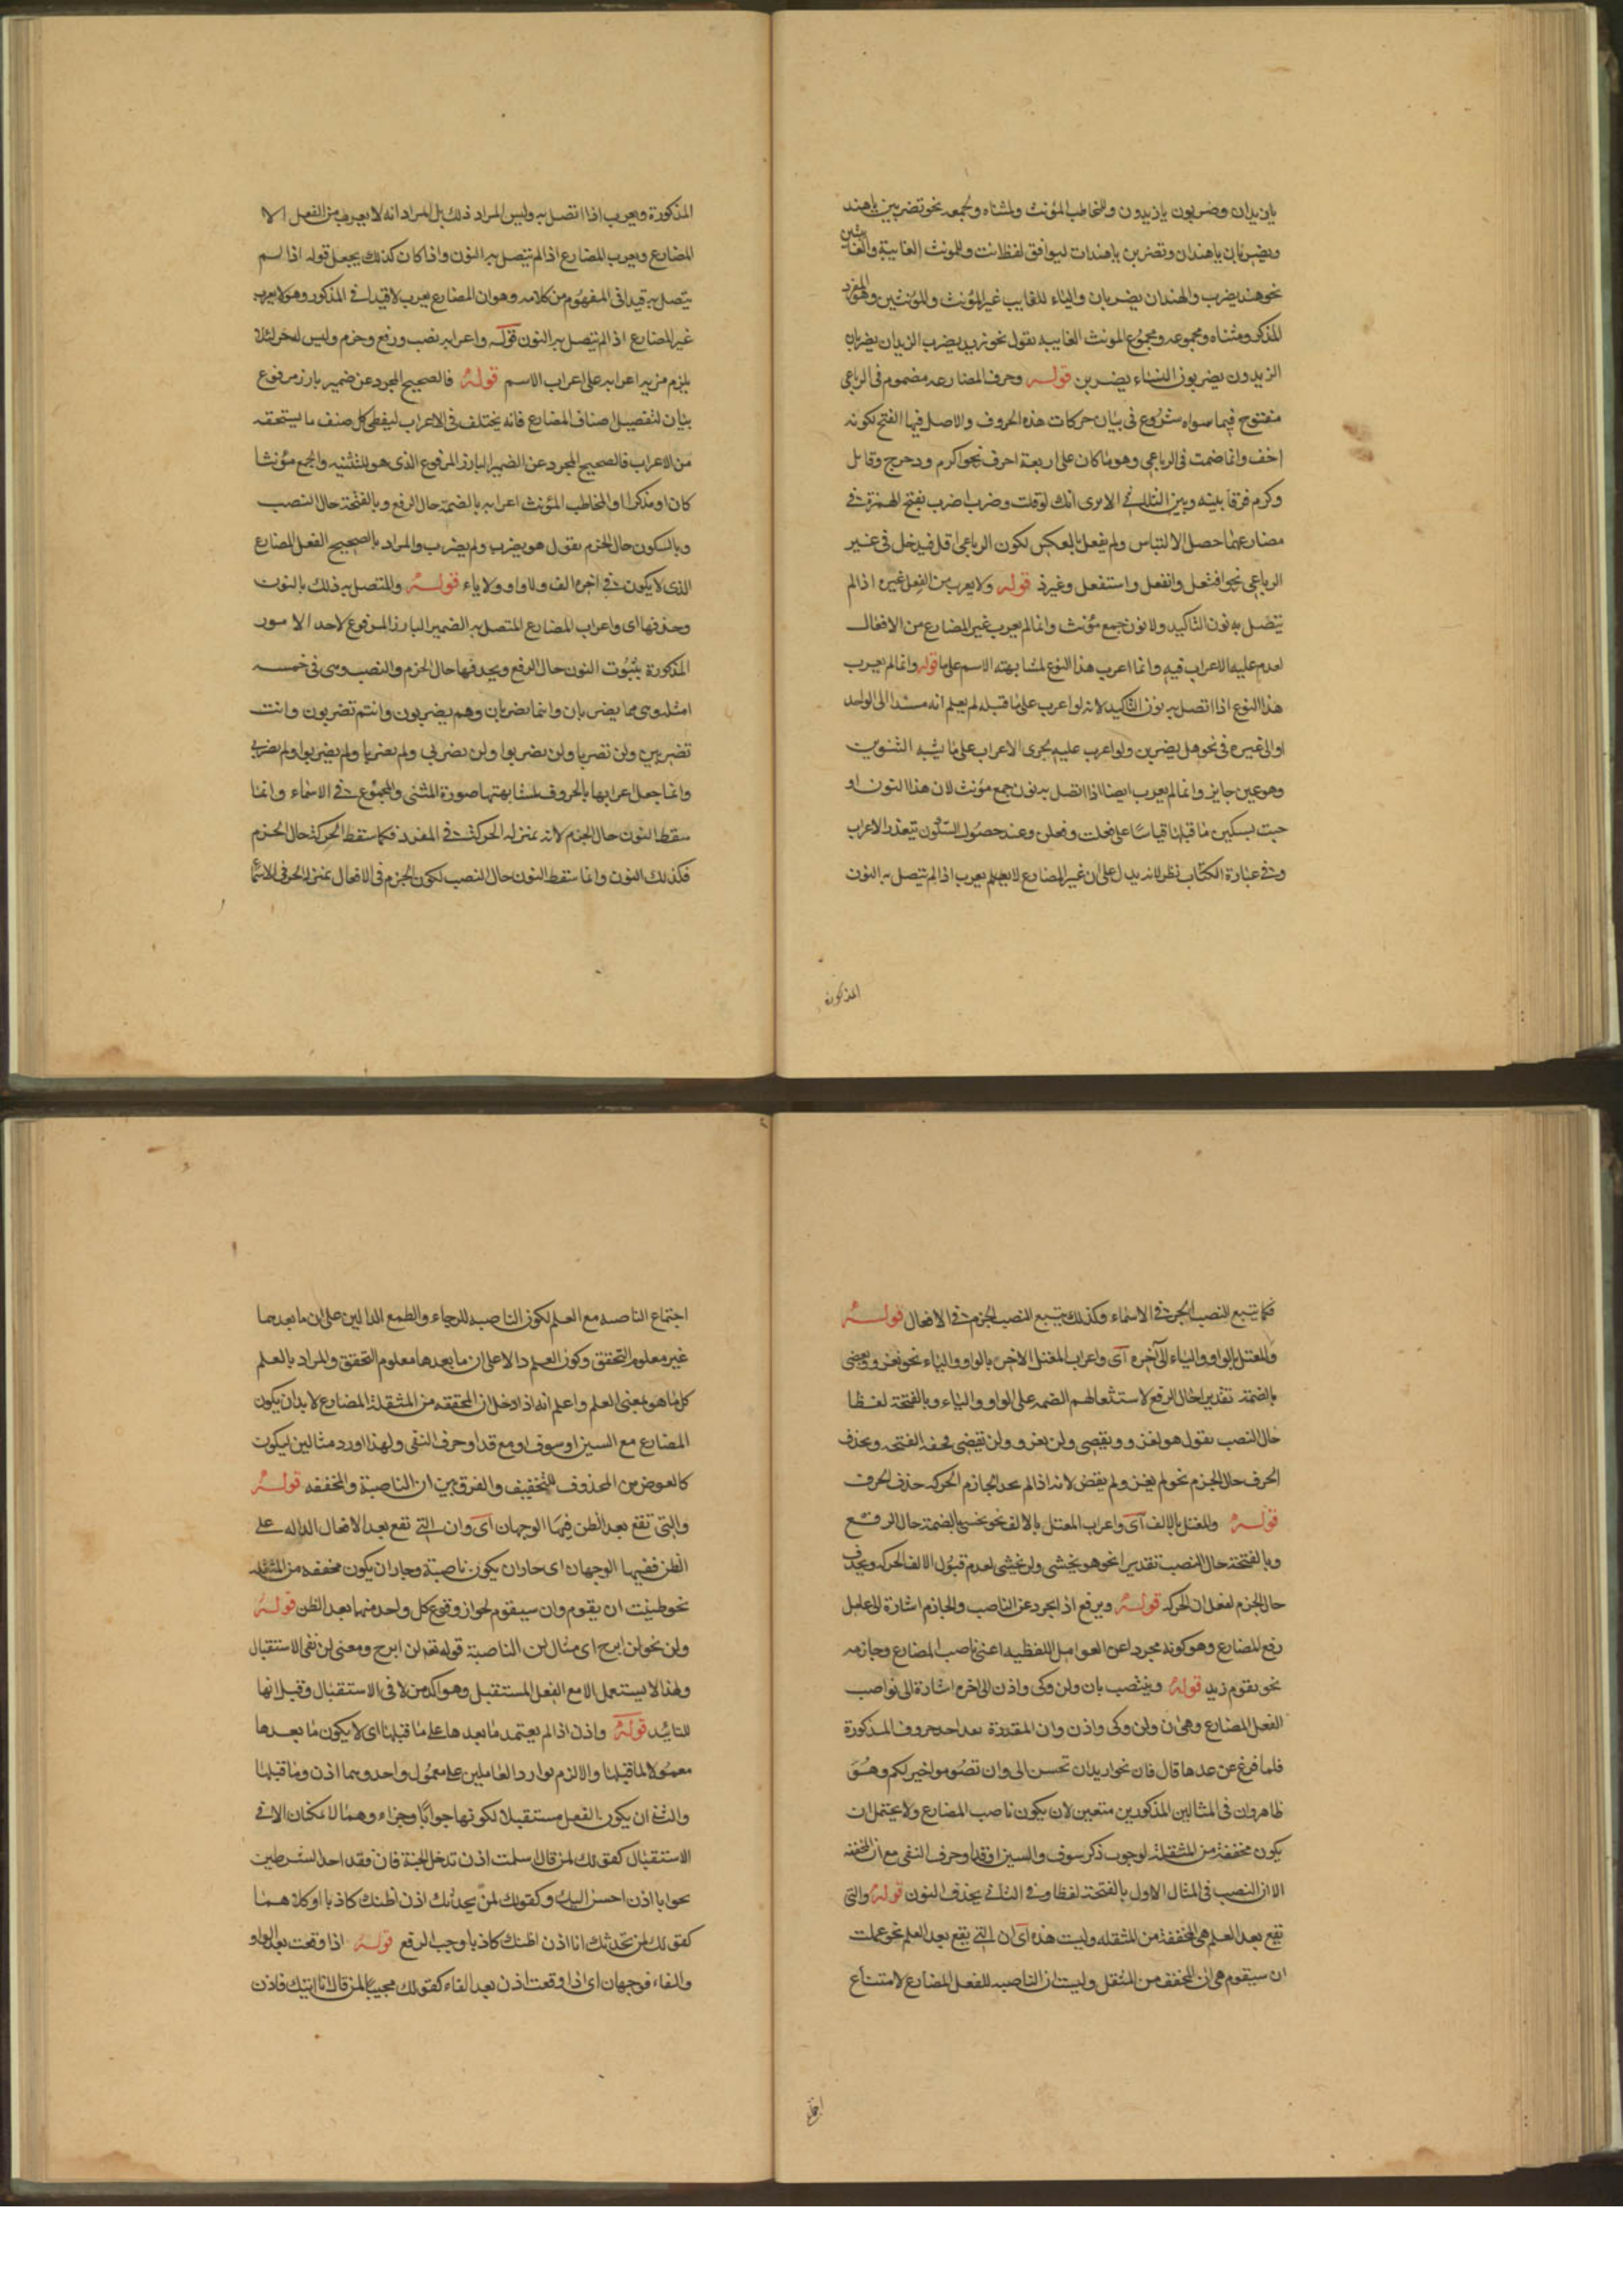 يا زيدان وضربون يا زيدون وللمخاطب المؤنث ولمثناه ولجمعه نحو تضربين يا هند
وتضربان يا هندان وتضربن يا هندات ليوافق لفظ انت وللمونث الغايبة والغايبتين
نحو هند يضرب والهندان يضربان والياء للغايب غير المؤنث والمؤنثين وهو المفرد
المذكر ومثناه ومجموعه ومجموع المونث الغايبه تقول نحو زيد يضرب الزيدان يضربان
الزيدون يضربون النساء يضربن قوله وحرف المضارعه مضموم فى الرباعى
مفتوح فيما سواه شروع فى بيان حركات هذه الحروف والاصل فيها الفتح لكونه
اخف وانما ضمت فى الرباعى وهو ما كان على اربعة احرف نحو اكرم ودحرج وقاتل
وكرم فرقا بينه وبين الثلاثى الا يرى انك لو قلت وضرب اضرب بفتح الهمزة فى
مضارعهما حصل الالتباس ولم يفعل بالعكس لكون الرباعى اقل فيدخل فى غير
الرباعى نحو افتعل وانفعل واستفعل وغيرذ قوله ولا يعرب من الفعل غيره اذا لم
يتصل به نون التاكيد ولا نون جمع مؤنث وانما لم يعرب غير المضارع من الافعال
لعدم علية الاعراب فيه وانما اعرب هذا النوع لمشابهته الاسم على ما قوله وانما لم يعرب
هذا النوع اذا اتصل به نون التاكيد لانه لو اعرب على ما قبله لم يعلم انه مسند الى الواحد
او الى غيره فى نحو هل يضربن ولو اعرب عليه لجرى الاعراب على ما يشبه التنوين
وهو غير جايز وانما لم يعرب ايضا اذا اتصل به نون جمع مؤنث لان هذا النون او
جبت تسكين ما قبلها قياسا على فعلت وفعلن وعند حصول السكون يتعذر الاعراب
وفى عبارة الكتاب نظر لانه يدل على ان غير المضارع لا يعلم يعرب اذا لم يتصل به النون
المذكورة
المذكورة ويعرب اذا اتصل به وليس المراد ذلك بل المراد انه لا يعرب من الفعل الا
المضارع ويعرب المضارع اذا لم يتصل به النون واذا كان كذلك يجعل قوله اذا لم
يتصل به قيدا فى المفهوم من كلامه وهو ان المضارع يعرب لا قيدا فى المذكور وهو لا يعرب
غير المضارع اذا لم يتصل به النون قوله واعرابه نصب ورفع وجزم وليس له جر لئلا
يلزم مزية اعرابه على اعراب الاسم قوله فالصحيح المجرد عن ضمير بارز مرفوع
بيان لتفصيل اصناف المضارع فانه يختلف فى الاعراب ليفطى كل صنف ما يستحقه
من الاعراب فالصحيح المجرد عن الضمير البارز المرفوع الذى هو للتثنيه والجمع مؤنثا
كان او مذكرا او المخاطب المؤنث اعرابه بالضمة حال الرفع وبالفتحة حال النصب
وبالسكون حال الجزم تقول هو يضرب ولم يضرب والمراد بالصحيح الفعل المضارع
الذى لا يكون فى آخره الف ولا واو ولا ياء قوله والمتصل به ذلك بالنون
وحذفها اى واعراب المضارع المتصل به الضمير البارز المرفوع لاحد الامور
المذكورة بثبوت النون حال الرفع وبحذفها حال الجزم والنصب وهى فى خمسه
امثله وهى هما يضربان وانتما تضربان وهم يضربون وانتم تضربون وانت
تضربين ولن تضربا ولن يضربوا ولن تضربى ولم يضربا ولم يضربوا ولم تضربى
وانما جعل اعرابها بالحروف لمشابهتها صورة المثنى والمجموع فى الاسماء وانما
سقط النون حال الجزم لانه بمنزلة الحركة فى المفرد فكما سقط الحركة حال الجزم
فكذلك النون وانما سقط النون حال النصب لكون الجزم فى الافعال بمنزلة الجر فى الاسماء
فكما يتبع النصب الجر فى الاسماء وكذلك يتبع النصب الجزم فى الافعال قوله
والمعتل بالواو والياء الى آخره اى واعراب المعتل الاخر بالواو والياء نحو يغزو ويقضى
بالضمة تقديرا حال الرفع لاستثقالهم الضمه على الواو والياء وبالفتحة لفظا
حال النصب تقول هو يغزو ويقضى ولن يغزو ولن يقضى لخفة الفتحه وبحذف
الحرف حال الجزم نحو لم يغز ولم يقض لانه اذا لم يجد الجازم الحركه حذف الحرف
قوله والمعتل بالالف اى واعراب المعتل بالالف نحو يخشى بالضمة حال الرفع
وبالفتحة حال النصب تقديرا نحو هو يخشى ولن يخشى لعدم قبول الالف الحركه وبحذف
حال الجزم لفقدان الحركه قوله ويرفع اذا تجرد عن الناصب والجازم اشارة الى عامل
رفع المضارع وهو كونه مجردا عن العوامل اللفظيه اعنى ناصب المضارع وجازمه
نحو يقوم زيد قوله وينتصب بان ولن وكى واذن الى اخره اشارة الى نواصب
الفعل المضارع وهى ان ولن وكى واذن وان المقدرة بعد احد حروف المذكورة
فلما فرغ عن عدها قال فان نحو اريد ان تحسن الى وان تصوموا خير لكم وهو
ظاهر وان فى المثالين المذكورين متعين لان يكون ناصب المضارع ولا يحتمل ان
يكون مخففة من المثقلة لوجوب ذكر سوف والسين او قد او حرف النفى مع ان المخففه
الا ان النصب فى المثال الاول بالفتحة لفظا وفى الثانى بحذف النون قوله والتى
تقع بعد العلم هى المخففة من المثقله وليت هذه اى ان التى تقع بعد العلم نحو علمت
ان سيقوم هى ان المخفف من المثقل وليت ان الناصبه للفعل المضارع لامتناع
اجتماع
اجتماع الناصبه مع العلم لكون الناصبه للرجاء والطمع الدالين على ان ما بعدهما
غير معلوم التحقق وكون العلم دالا على ان ما بعدها معلوم التحقق والمراد بالعلم
كل ما هو بمعنى العلم واعلم انه اذا دخل ان المخففه من المثقلة المضارع لا بد ان يكون
المضارع مع السين او سوف او مع قد او حرف النفى ولهذا اورد مثالين ليكون
كالعوض من المحذوف للتخفيف والفرق بين ان الناصبة والمخففه قوله
والتى تقع بعد الظن فيها الوجهان اى وان التى تقع بعد الافعال الداله على
الظن ففيها الوجهان اى جاز ان يكون ناصبة وجاز ان يكون مخففه من المثقله
نحو ظننت ان يقوم وان سيقوم لجواز وقوع كل واحد منهما بعد الظن قوله
ولن نحو لن ابرح اى مثال لن الناصبة قوله تع لن ابرح ومعنى لن نفى الاستقبال
ولهذا لا يستعمل الا مع الفعل المستقبل وهو اكد من لا فى الاستقبال وقيل انها
للتائيد قوله واذن اذا لم يعتمد ما بعدها على ما قبلها اى لا يكون ما بعدها
معمولا لما قبلها والا لزم توارد العاملين على معمول واحد وهما اذن وما قبلها
والثانى ان يكون الفعل مستقبلا لكونها جوابا وجزاء وهما لا يمكنان الا فى
الاستقبال كقولك لمن قال اسلمت اذن تدخل الجنة فان فقد احد الشرطين
نحو انا اذن احسن اليك وكقولك لمن يحدثك اذن اظنك كاذبا او كلاهما
كقولك لمن يحدثك انا اذن اظنك كاذبا وجب الرفع قوله اذا وقعت بعد الواو
والفاء فوجهان اى اذا وقعت اذن بعد الفاء كقولك مجيبا لمن قال انا اتيك فاذن